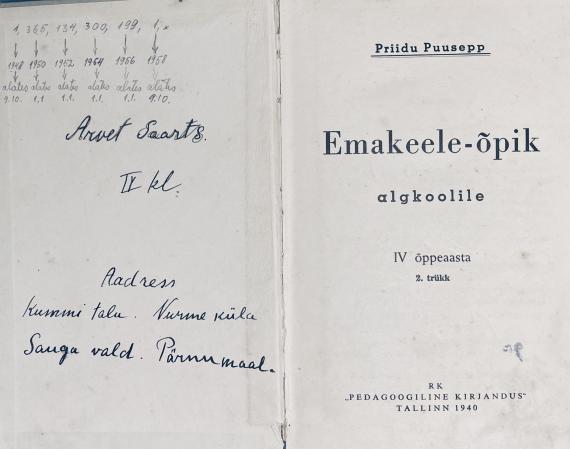 1, 365, 134, 300, 199, 1,
1948 1950 1952 1964 1956 1958
alates alates alates alates alates alates
9.10. 1.1 1.1. 1.1. 1.1. 9.10.
Arvet Saarts.
IV kl.
Aadress
Kummi talu. Nurme küla
Sauga vald. Pärnumaal.
Priidu Puusepp
Emakeele-õpik
algkoolile
IV õppeaasta
2. trükk
RK
„PEDAGOOGILINE KIRJANDUS"
TALLINN 1940